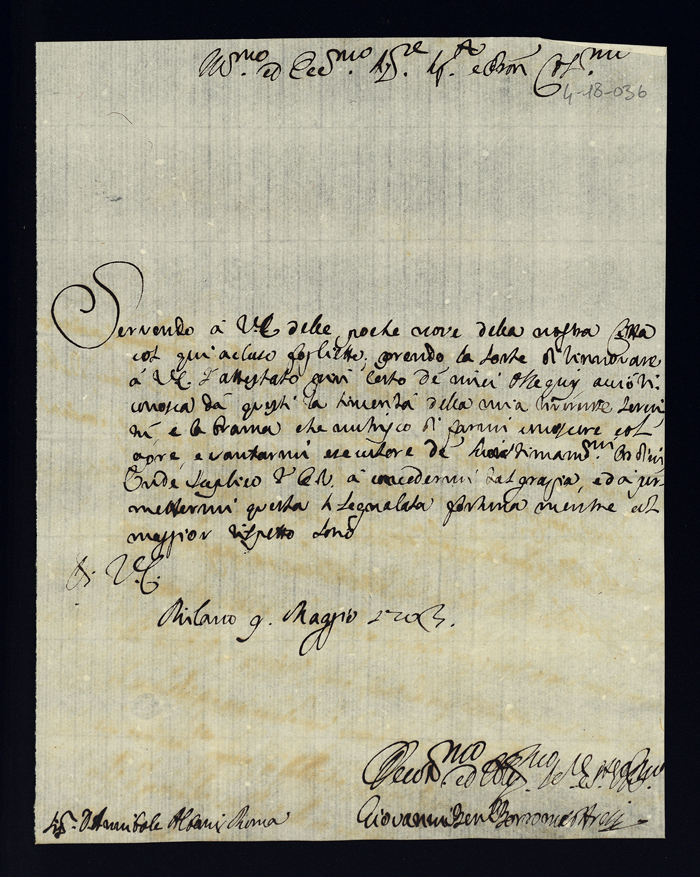 Ill.mo ed Ecc.mo Sig.re Sig.re e Pron Col.mo
4-18-036
Servendo à V.E. delle poche nove della nostra
col qui acluso foglietto, prendo la sorte di rinnovare
à V.E. l'attestato più certo de miei ossequij acciò ri
conosca da questi la sincerità della mia
e la brama che nutrisco di farmi conoscere col
opre, e vantarmi esecutore de suoi stimatis.mi ordini
Onde suplico V.E. à concedermi tal grazia, ed à per
mettermi questa segnalata fortuna mentre col
maggior rispetto sono
Di V.E.
Milano 9. Maggio 1703.
Devot.mo ed Obblig.mo
Giovanni Ben. Borromeo Aresi
Sig.r D. Annibale Albani Roma